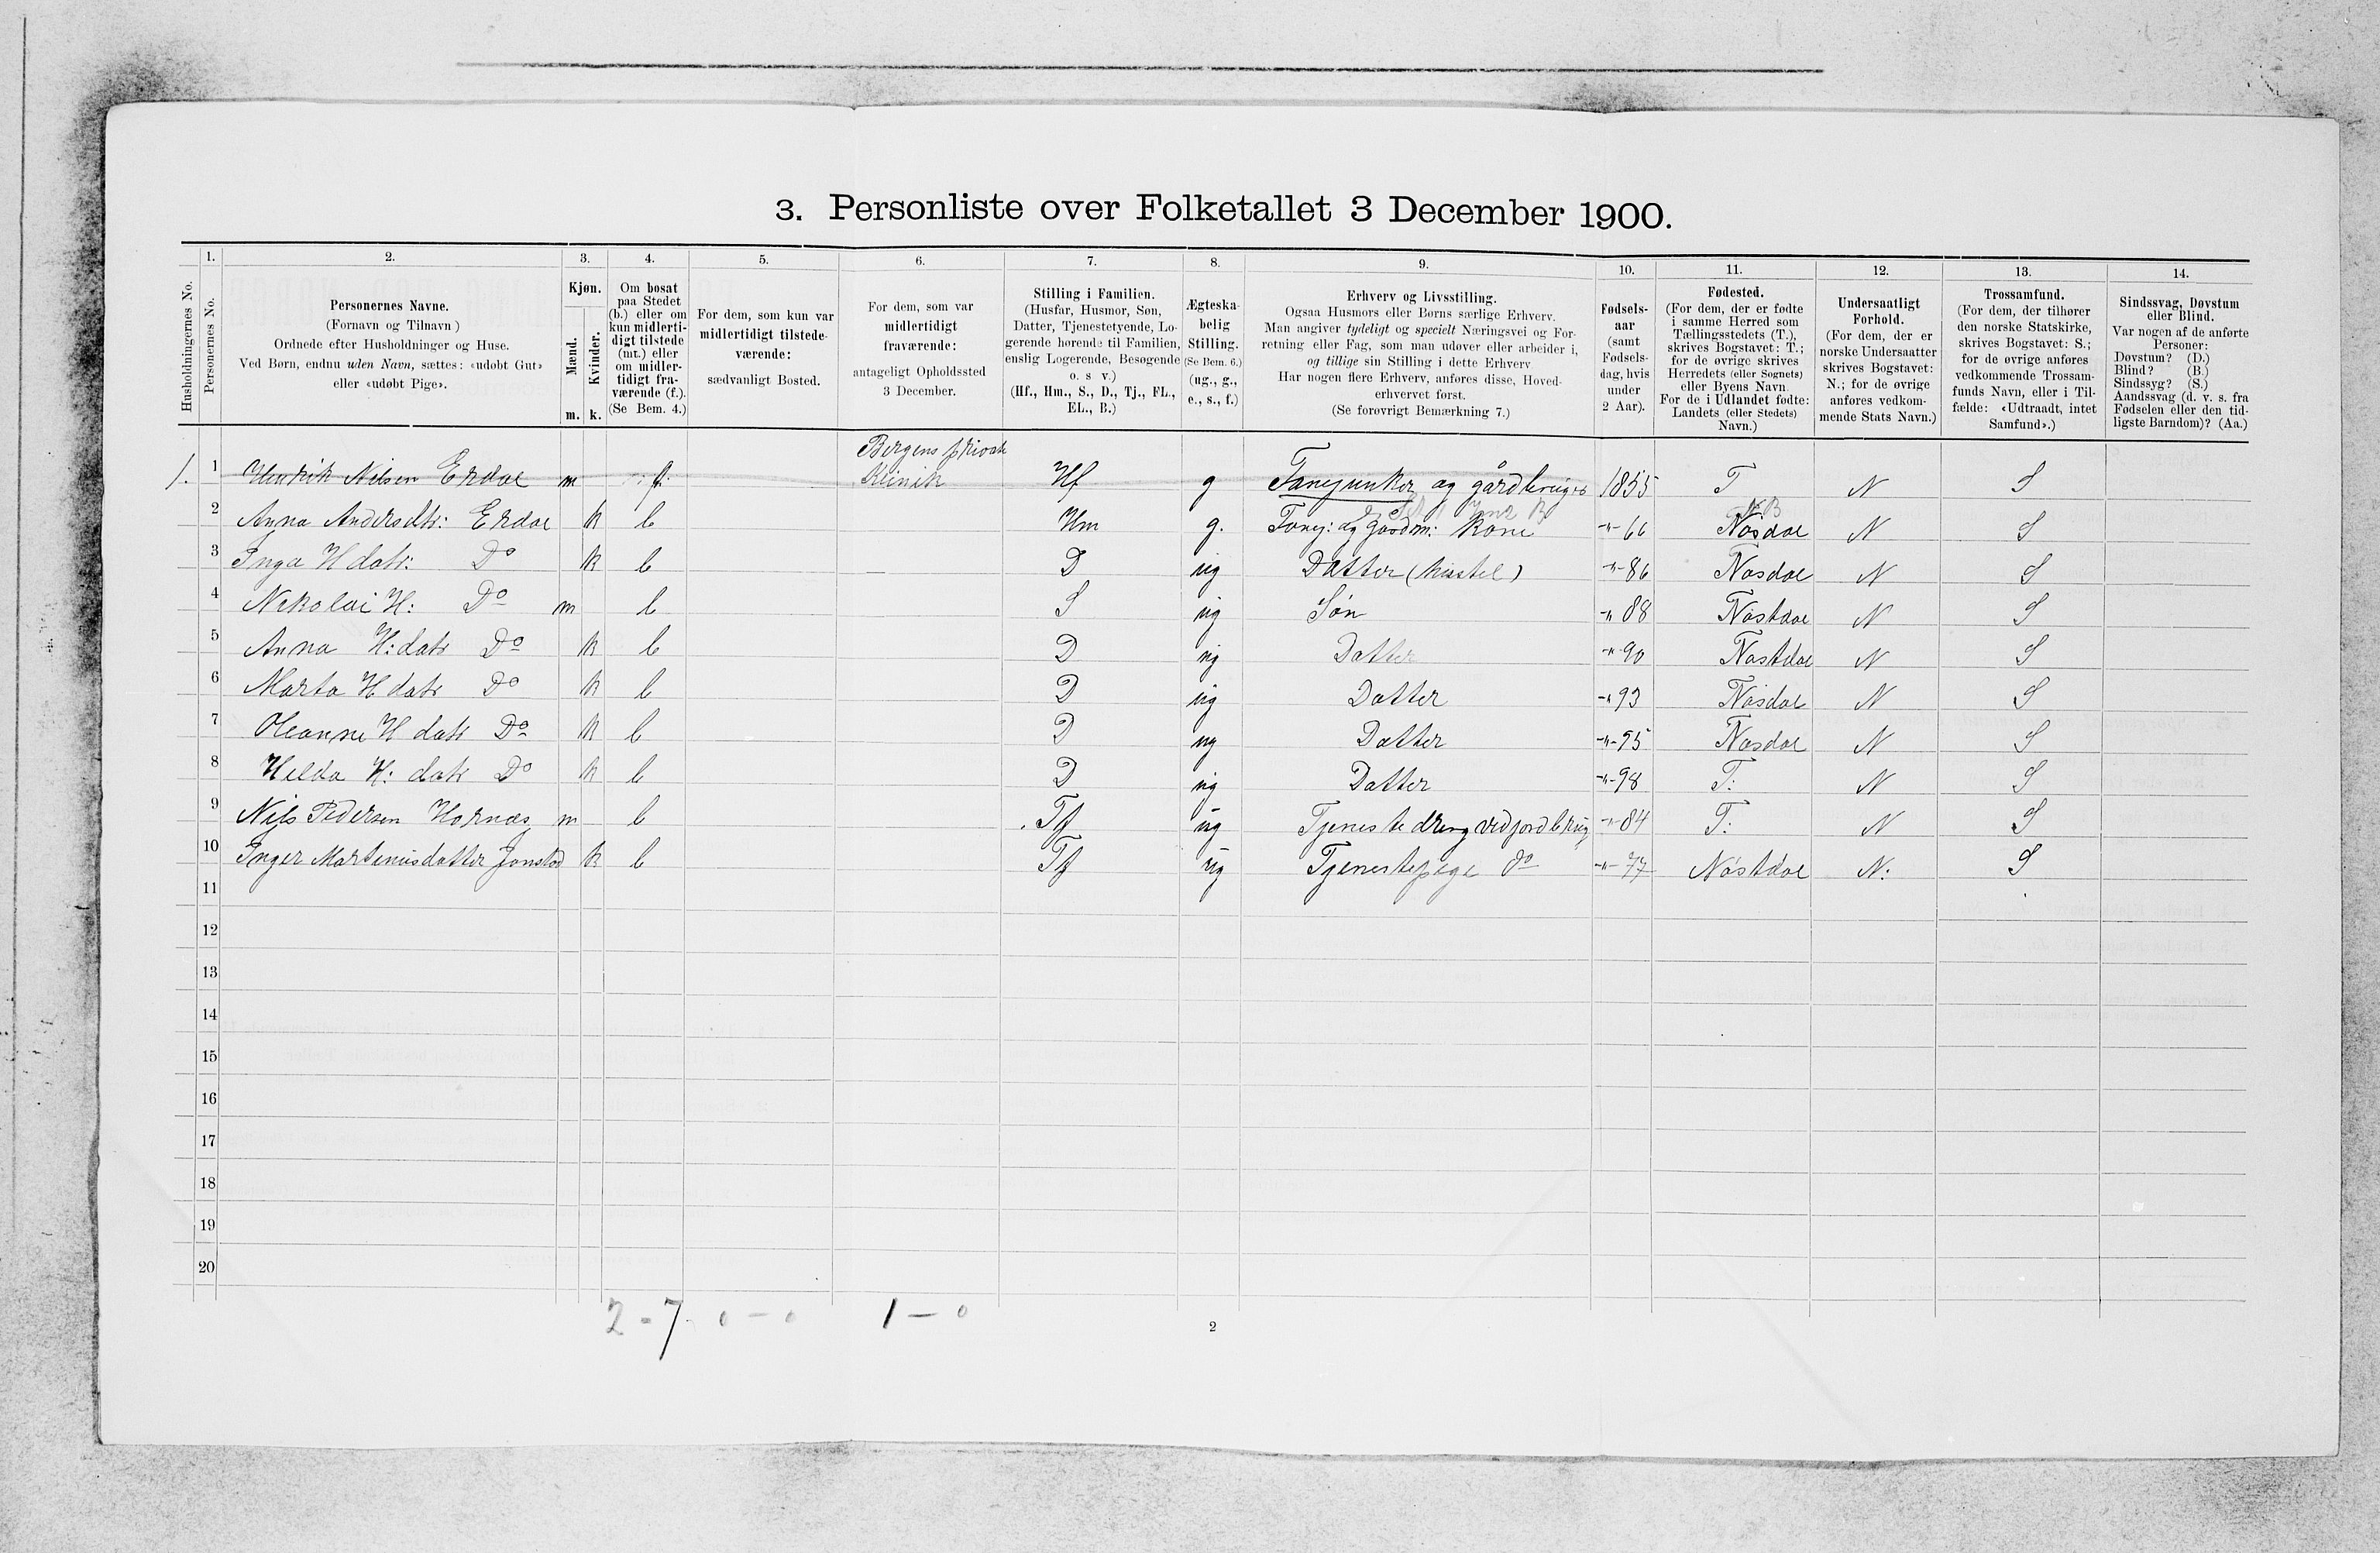 3. Personliste over Folketallet 3 December 1900.
Husholdningernes No.
1.
Personernes No.
2.
Personernes Navne.
(Fornavn og Tilnavn)
Ordnede efter Husholdninger og Huse.
Ved Børn, endnu uden Navn, sættes: «udøbt Gut»
eller «udøbt Pige».
3.
Kjøn.
Mænd.
Kvinder.
m. k.
4.
Om bosat
paa Stedet
(b.) eller om
kun midlerti-
digt tilstede
(mt.) eller
om midler-
tidigt fra-
værende (f.).
(Se Bem. 4.)
5.
For dem, som kun var
midlertidigt tilstede-
værende:
sædvanligt Bosted.
6.
For dem, som var
midlertidigt
fraværende:
antageligt Opholdssted
3 December.
7.
Stilling i Familien.
(Husfar, Husmor, Søn,
Datter, Tjenestetyende, Lo-
gerende hørende til Familien,
enslig Logerende, Besøgende
o. s v.)
(Hf., Hm., S., D., Tj., FL.,
EL., B.)
8.
Ægteska-
belig
Stilling.
(Se Bem. 6.)
(ug., g.,
e., s., f.)
9.
Erhverv og Livsstilling.
Ogsaa Husmors eller Børns særlige Erhverv.
Man angiver tydeligt og specielt Næringsvei og For-
retning eller Fag, som man udøver eller arbeider i,
og tillige sin Stilling i dette Erhverv
Har nogen flere Erhverv, anføres disse, Hoved-
erhvervet først.
(Se forøvrigt Bemærkning 7.)
10.
Fødsels-
aar
(samt
Fødsels-
dag, hvis
under
2 Aar).
11.
Fødested.
(For dem, der er fødte
i samme Herred som
Tællingsstedets (T.),
skrives Bogstavet: T.;
for de øvrige skrives
Herredets (eller Sognets)
eller Byens Navn.
For de i Udlandet fødte:
Landets (eller Stedets)
Navn.)
12.
Undersaatligt
Forhold.
(For dem, der er
norske Undersaatter
skrives Bogstavet:
N.; for de øvrige
anføres vedkom-
mende Stats Navn.)
13.
Trossamfund.
(For dem, der tilhører
den norske Statskirke,
skrives Bogstavet: S.;
for de øvrige anføres
vedkommende Trossam-
funds Navn, eller i Til-
fælde: «Udtraadt, intet
Samfund».)
14.
Sindssvag, Døvstum
eller Blind.
Var nogen af de anførte
Personer:
Døvstum? (D.)
Blind? (B.)
Sindssyg? (S.)
Aandssvag (d. v. s. fra
Fødselen eller den tid-
ligste Barndom)? (Aa.)
Bergens privat
1. 1 Hendrik Nilsen Erdal m f. Klinik Hf g Fanejunker og gårdbruger 1855 T N S
2 Anna Andersdtr: Erdal k b Hm g. Fanej: og Gaardm: kone -"-66 Nøsdal N S
3 Inga H datr: Do k b D ug Datter (husstel) -"-86 Nøsdal N S
4 Nikolai H: Do m b S ug Søn -"-88 Nøstdal N S
5 Anna H: datr Do k b D ug Datter -"-90 Nøstdal N S
6 Marta H datr Do k b D ug Datter -"-93 Nøsdal N S
7 Oleanne H datr Do k b D ug Datter -"-95 Nøsdal N S
8 Hilda H: datr Do k b D ug Datter -"-98 T: N S
9 Nils Pedersen Hornæs m b Tj ug Tjenestedreng ved jordbrug -"-84 T: N S
10 Inger Martinusdatter Jonstad k b Tj ug Tjenestepige do -"-77 Nøstdal N: S
11
12
13
14
15
16
17
18
19
20
2 - 7 0 - 0 1 - 0
2